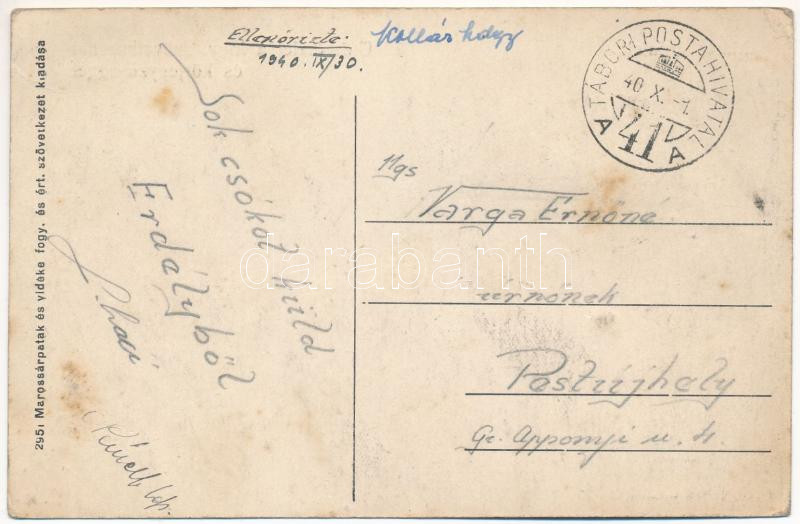 Ellenőrizte:
1940. IX/30.
Kollár hdgy
TÁBORI POSTAHIVATAL
40 X. -1.
A 41 A
2951 Marossárpatak és vidéke fogy. és ért. szövetkezet kiadása
Sok csókot küld
Erdélyből
Ngs
Varga Ernőné
úrnőnek
Pestújhely
Gr. Apponyi u. 4.
darabanth